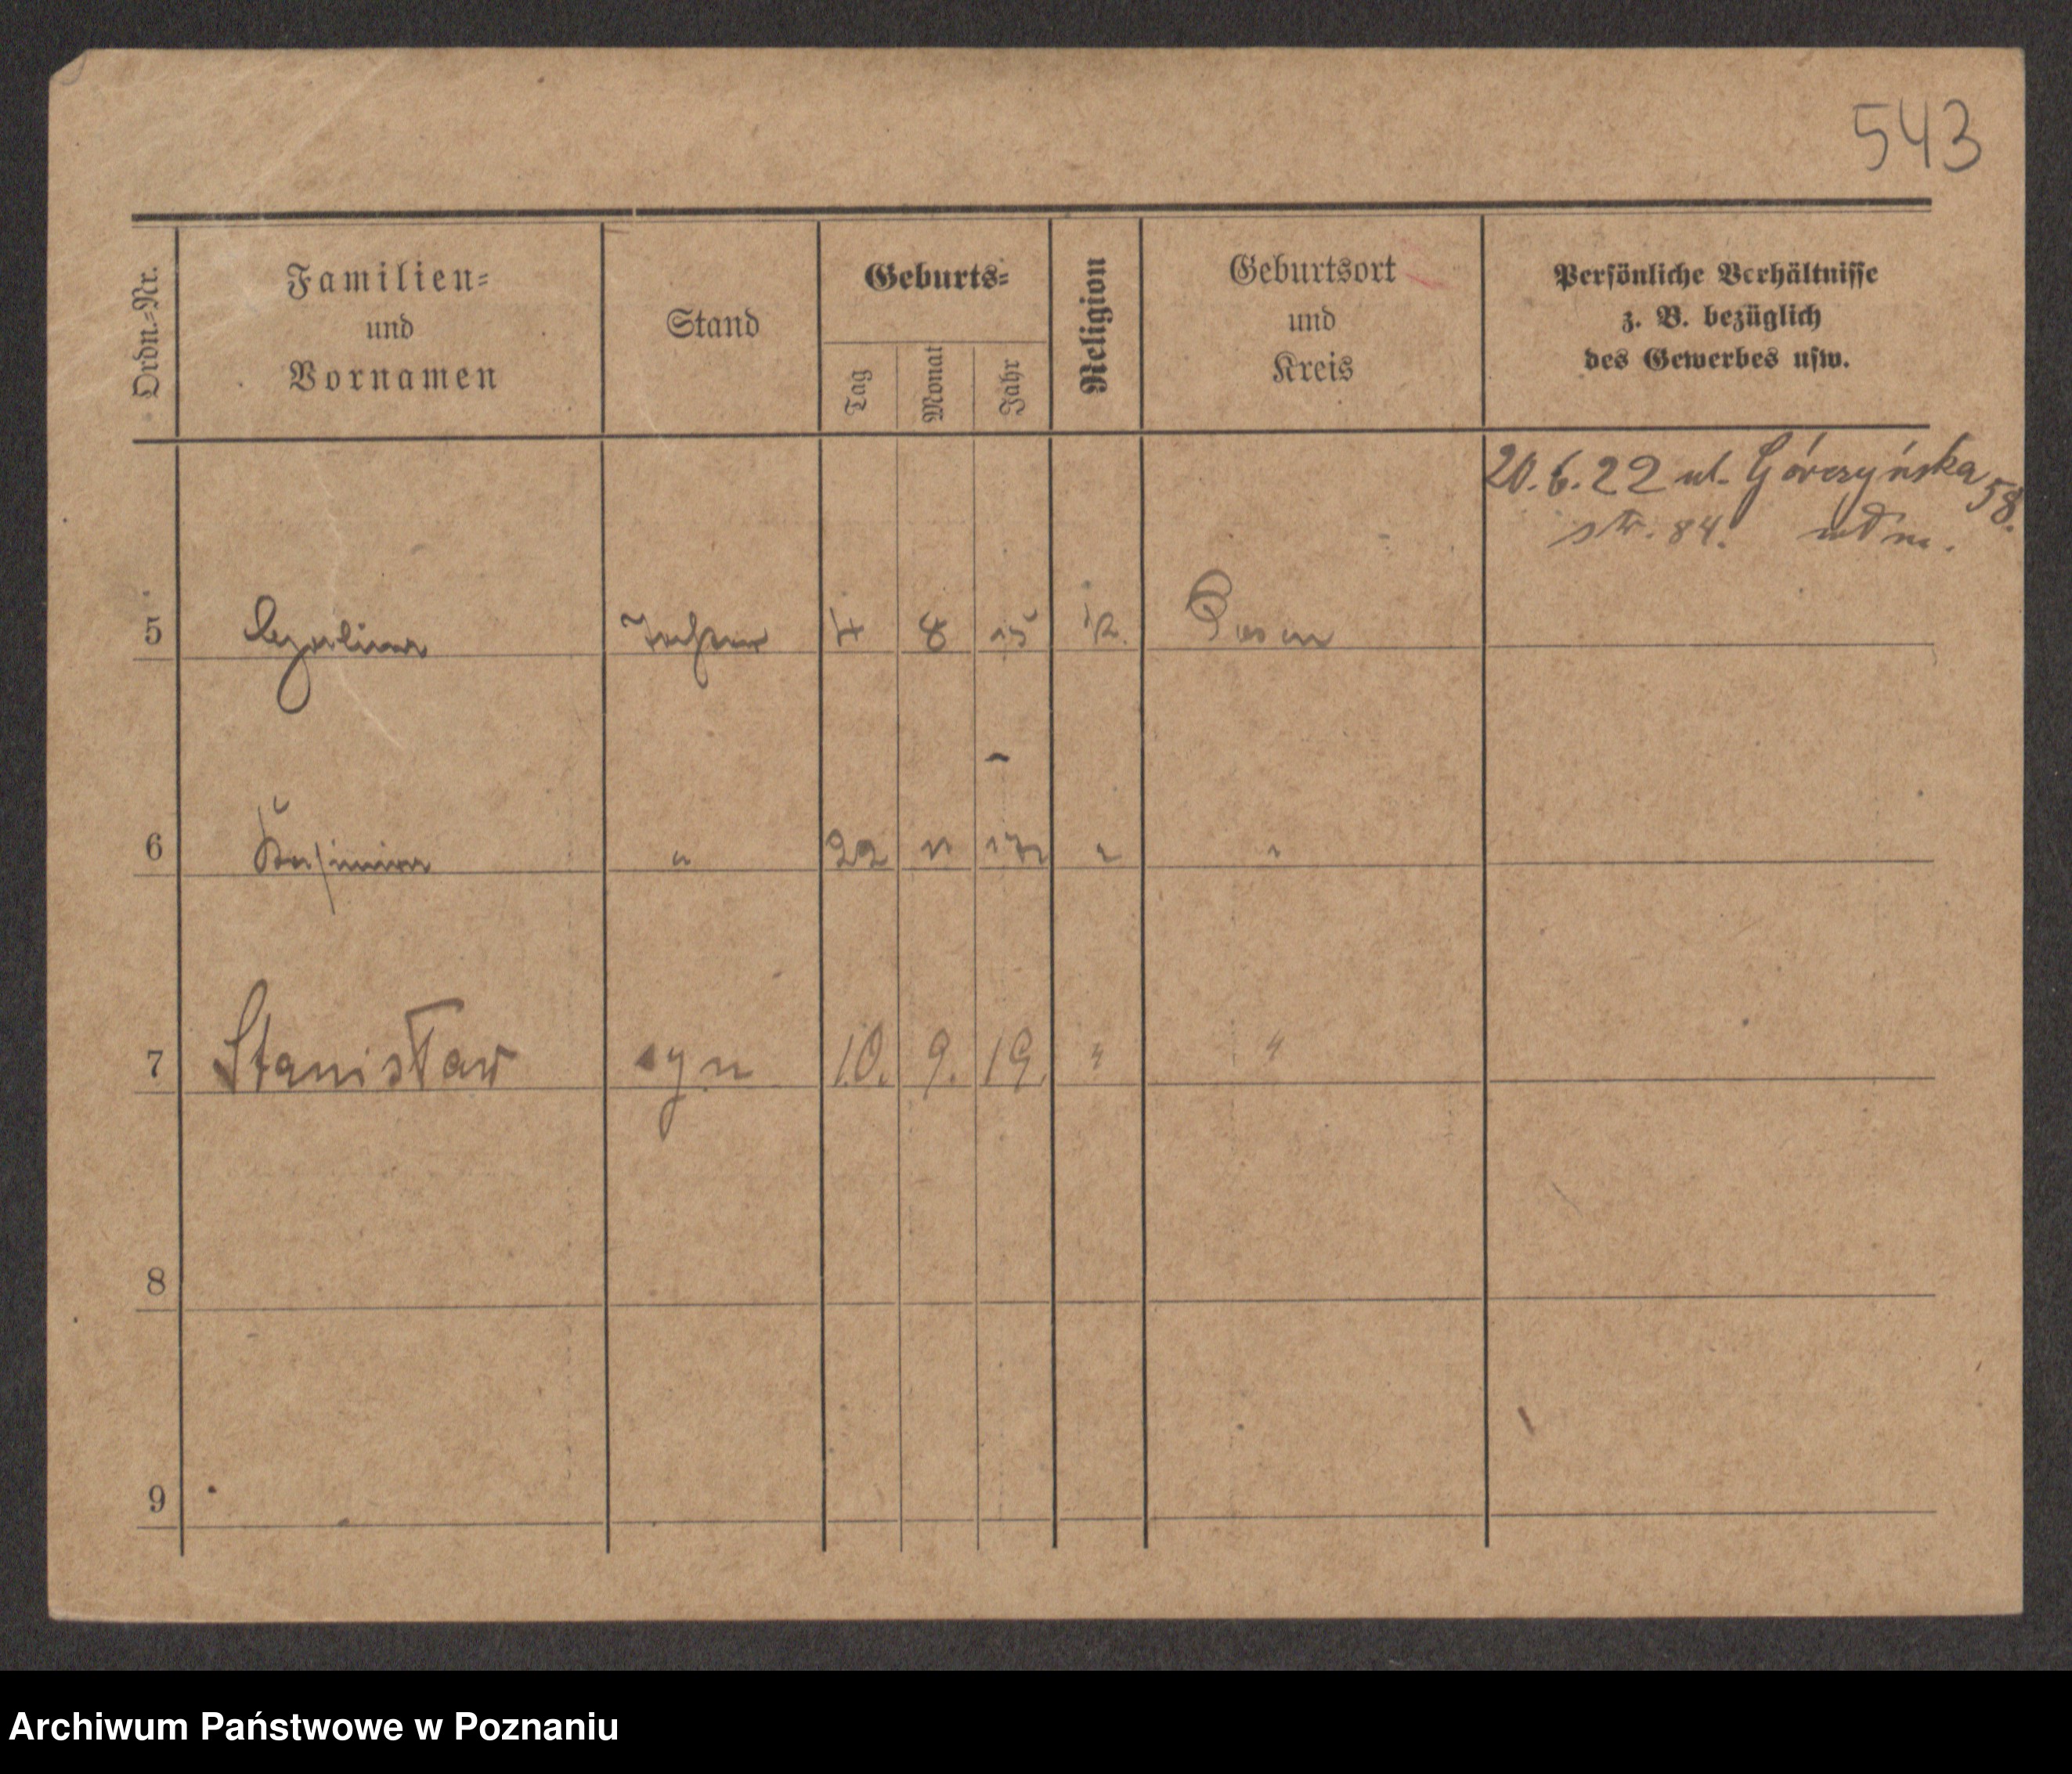 543
Ordn.=Nr.
Familien=
und
Vornamen
Stand
Geburts=
Tag
Monat
Jahr
Religion
Geburtsort
und
Kreis
Persönliche Verhältnisse
z. B. bezüglich
des Gewerbes usw.
20.6.22 ul. Górczyńska 58.
str. 84.
5 4 8 15 k. Posen
6 " 22 11 " "
7 Stanisław syn 10. 9. 19. " "
8
9
Archiwum Państwowe w Poznaniu